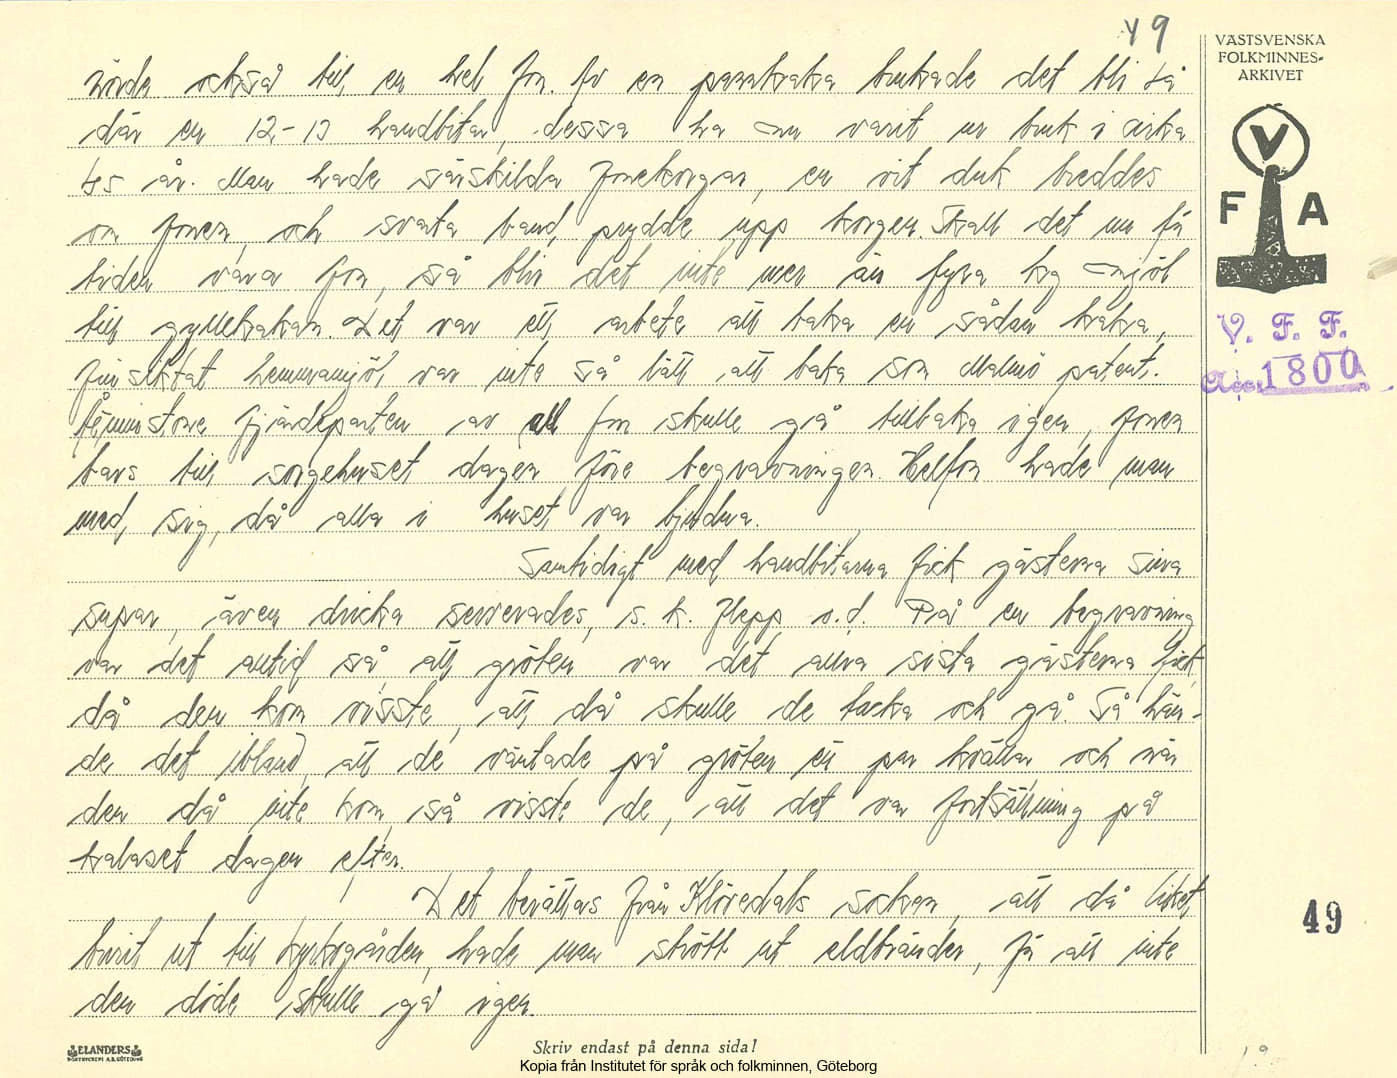 49
VÄSTSVENSKA
FOLKMINNES-
ARKIVET
V
F A
V. F. F.
Acc. 1800
också till en hel fon. Av en pannkaka brukade det bli så
där en 12-13 handbitar, dessa ha nu varit ur bruk i cirka
45 år. Man hade särskilda fonekorgar, en vit duk breddes
om fonen, och svarta band prydde upp korgen. Skall det nu få
tiden vara fon, så blir det inte mer än fyra kg mjöl
till gyllekakan. Det var ett arbete att baka en sådan kaka,
finsiktat hemmamjöl var inte så lätt att baka som Malmö patent.
Åtminstone fjärdeparten av all fon skulle gå tillbaka igen, fonen
bars till sorgehuset dagen före begravningen. Helfon hade man
med sig, då alla i huset var bjudna.
Samtidigt med handbitarna fick gästerna sina
supar, även dricka serverades, s. k. o.d. På en begravning
var det alltid så, att gröten var det allra sista gästerna fick
då den kom visste, att då skulle de tacka och gå. Så hän-
de det ibland, att de väntade på gröten ett par kvällar och när
den då inte kom, så visste de, att det var fortsättning på
kalaset dagen efter.
Det berättas från Klövedals socken, att då liket
burit ut till kyrkogården, hade man strött ut eldbränder, så att inte
den döde skulle gå igen.
49
ELANDERS
BOKTRYCKERI A.B. GÖTEBORG
Skriv endast på denna sida!
Kopia från Institutet för språk och folkminnen, Göteborg